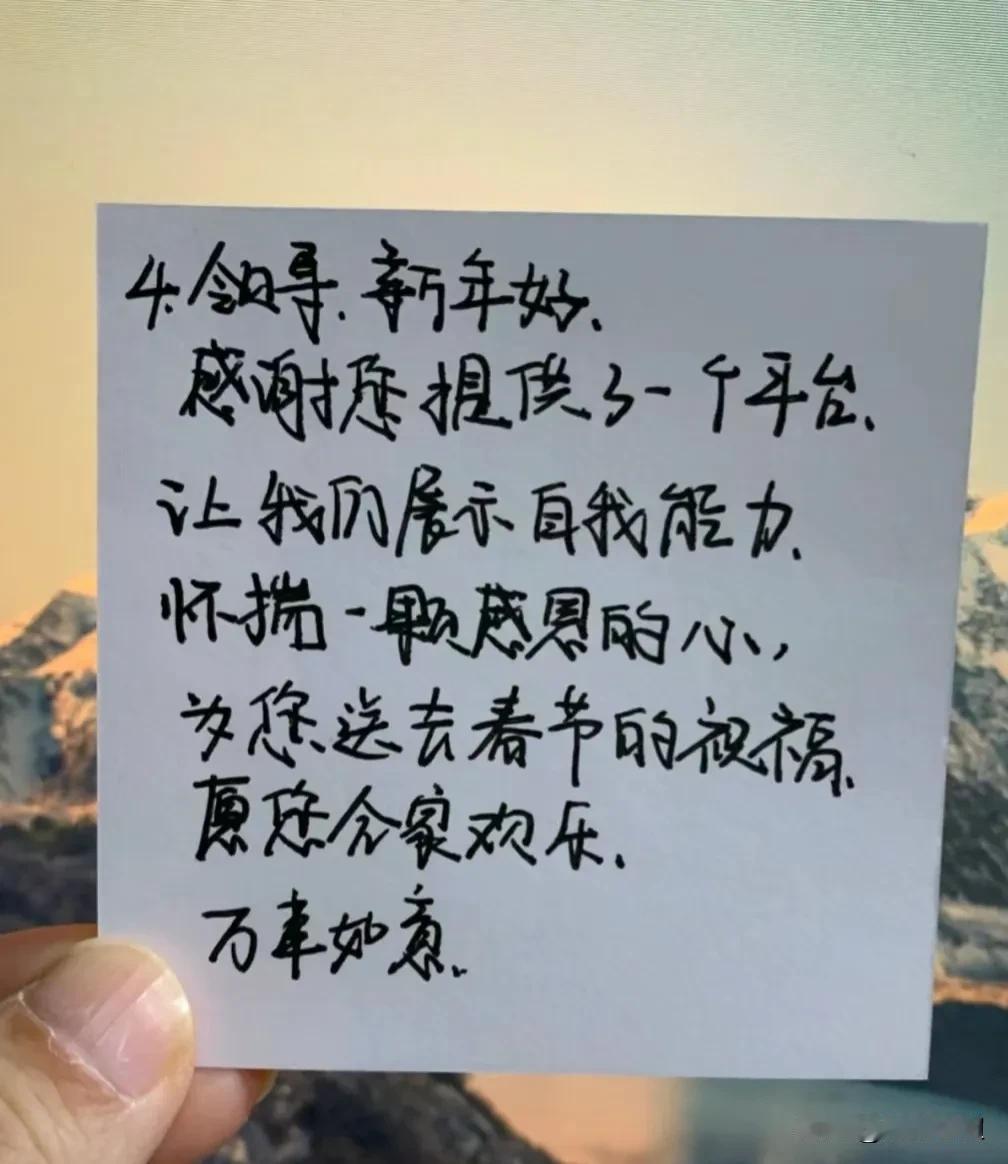 4.领导.新年好.
感谢您提供了一个平台.
让我们展示自我能力.
怀揣一颗感恩的心,
为您送去春节的祝福.
愿您合家欢乐.
万事如意.